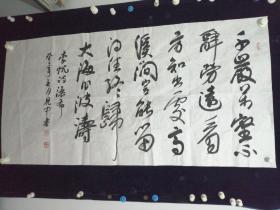 千巖萬壑不
辭勞遠看
方知出處高
溪澗豈能留
得住終歸
大海作波濤
李忱詩瀑布
年五月